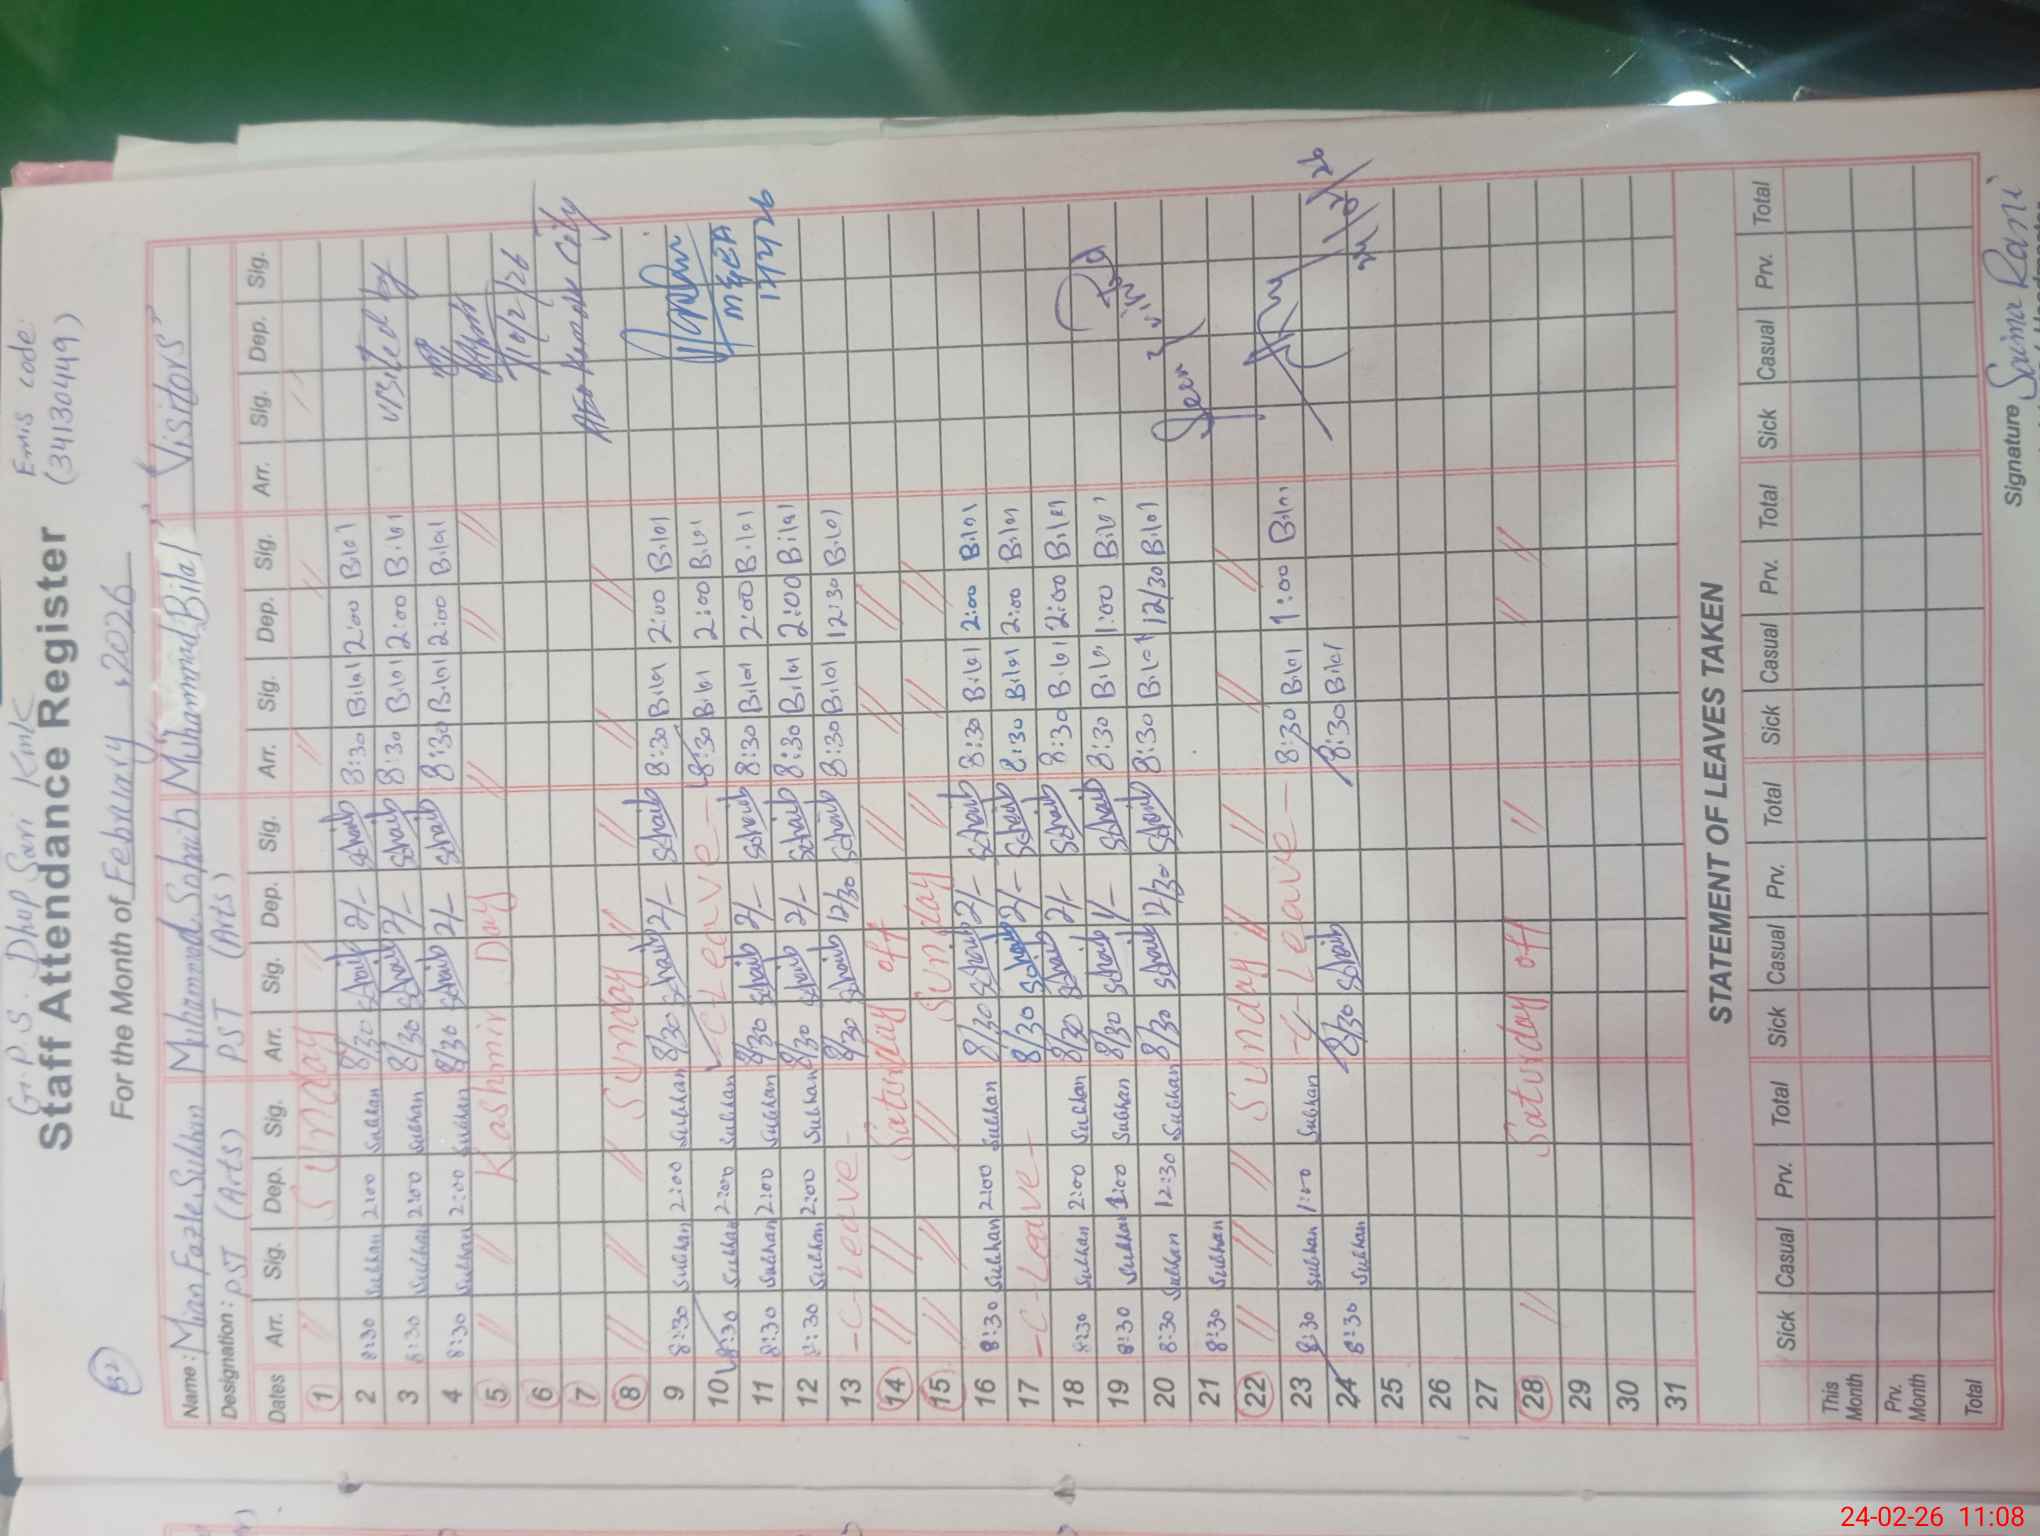 32
G.P.S. Dhup Sari Kmk
Emis code:
(34130449)
Staff Attendance Register
For the Month of February, 2026
Name: Mian Fazle Subhan Muhammad Sohaib Muhammad Bilal "Visitors"
Designation: PST (Arts) PST (Arts)
Dates Arr. Sig. Dep. Sig. Arr. Sig. Dep. Sig. Arr. Sig. Dep. Sig. Arr. Sig. Dep. Sig.
1 // Sunday // // // //
2 8:30 Subhan 2:00 Subhan 8/30 Sohaib 2/- Sohaib 8:30 Bilal 2:00 Bilal
3 8:30 Subhan 2:00 Subhan 8/30 Sohaib 2/- Sohaib 8:30 Bilal 2:00 Bilal visited by
4 8:30 Subhan 2:00 Subhan 8/30 Sohaib 2/- Sohaib 8:30 Bilal 2:00 Bilal
5 // // Kashmir Day // // //
10/2/26
6
7 City
8 // // // Sunday // // // //
9 8:30 Subhan 2:00 Subhan 8/30 Sohaib 2/- Sohaib 8:30 Bilal 2:00 Bilal
10 8:30 Subhan 2:00 Subhan -C-Leave- 8:30 Bilal 2:00 Bilal
MEA
11 8:30 Subhan 2:00 Subhan 8/30 Sohaib 2/- Sohaib 8:30 Bilal 2:00 Bilal
12 8:30 Subhan 2:00 Subhan 8/30 Sohaib 2/- Sohaib 8:30 Bilal 2:00 Bilal
13 -C-Leave- 8/30 Sohaib 12/30 Sohaib 8:30 Bilal 12:30 Bilal
14 // // Saturday off // // //
15 // // // Sunday // // //
16 8:30 Subhan 2:00 Subhan 8/30 Sohaib 2/- Sohaib 8:30 Bilal 2:00 Bilal
17 -C-Leave- 8/30 Sohaib 2/- Sohaib 8:30 Bilal 2:00 Bilal
18 8:30 Subhan 2:00 Subhan 8/30 Sohaib 2/- Sohaib 8:30 Bilal 2:00 Bilal
19 8:30 Subhan 1:00 Subhan 8/30 Sohaib 1/- Sohaib 8:30 Bilal 1:00 Bilal
20 8:30 Subhan 12:30 Subhan 8/30 Sohaib 12/30 Sohaib 8:30 Bilal 12/30 Bilal Seen
21 8:30 Subhan
22 // // // Sunday // // // //
23 8:30 Subhan 1:00 Subhan -C-Leave- 8:30 Bilal 1:00 Bilal
24 8:30 Subhan 8/30 Sohaib 8:30 Bilal
25
26
27
28 // Saturday off // // //
29
30
31
STATEMENT OF LEAVES TAKEN
Sick Casual Prv. Total Sick Casual Prv. Total Sick Casual Prv. Total Sick Casual Prv. Total
This Month
Prv. Month
Total
Signature Saima Rani
24-02-26 11:08